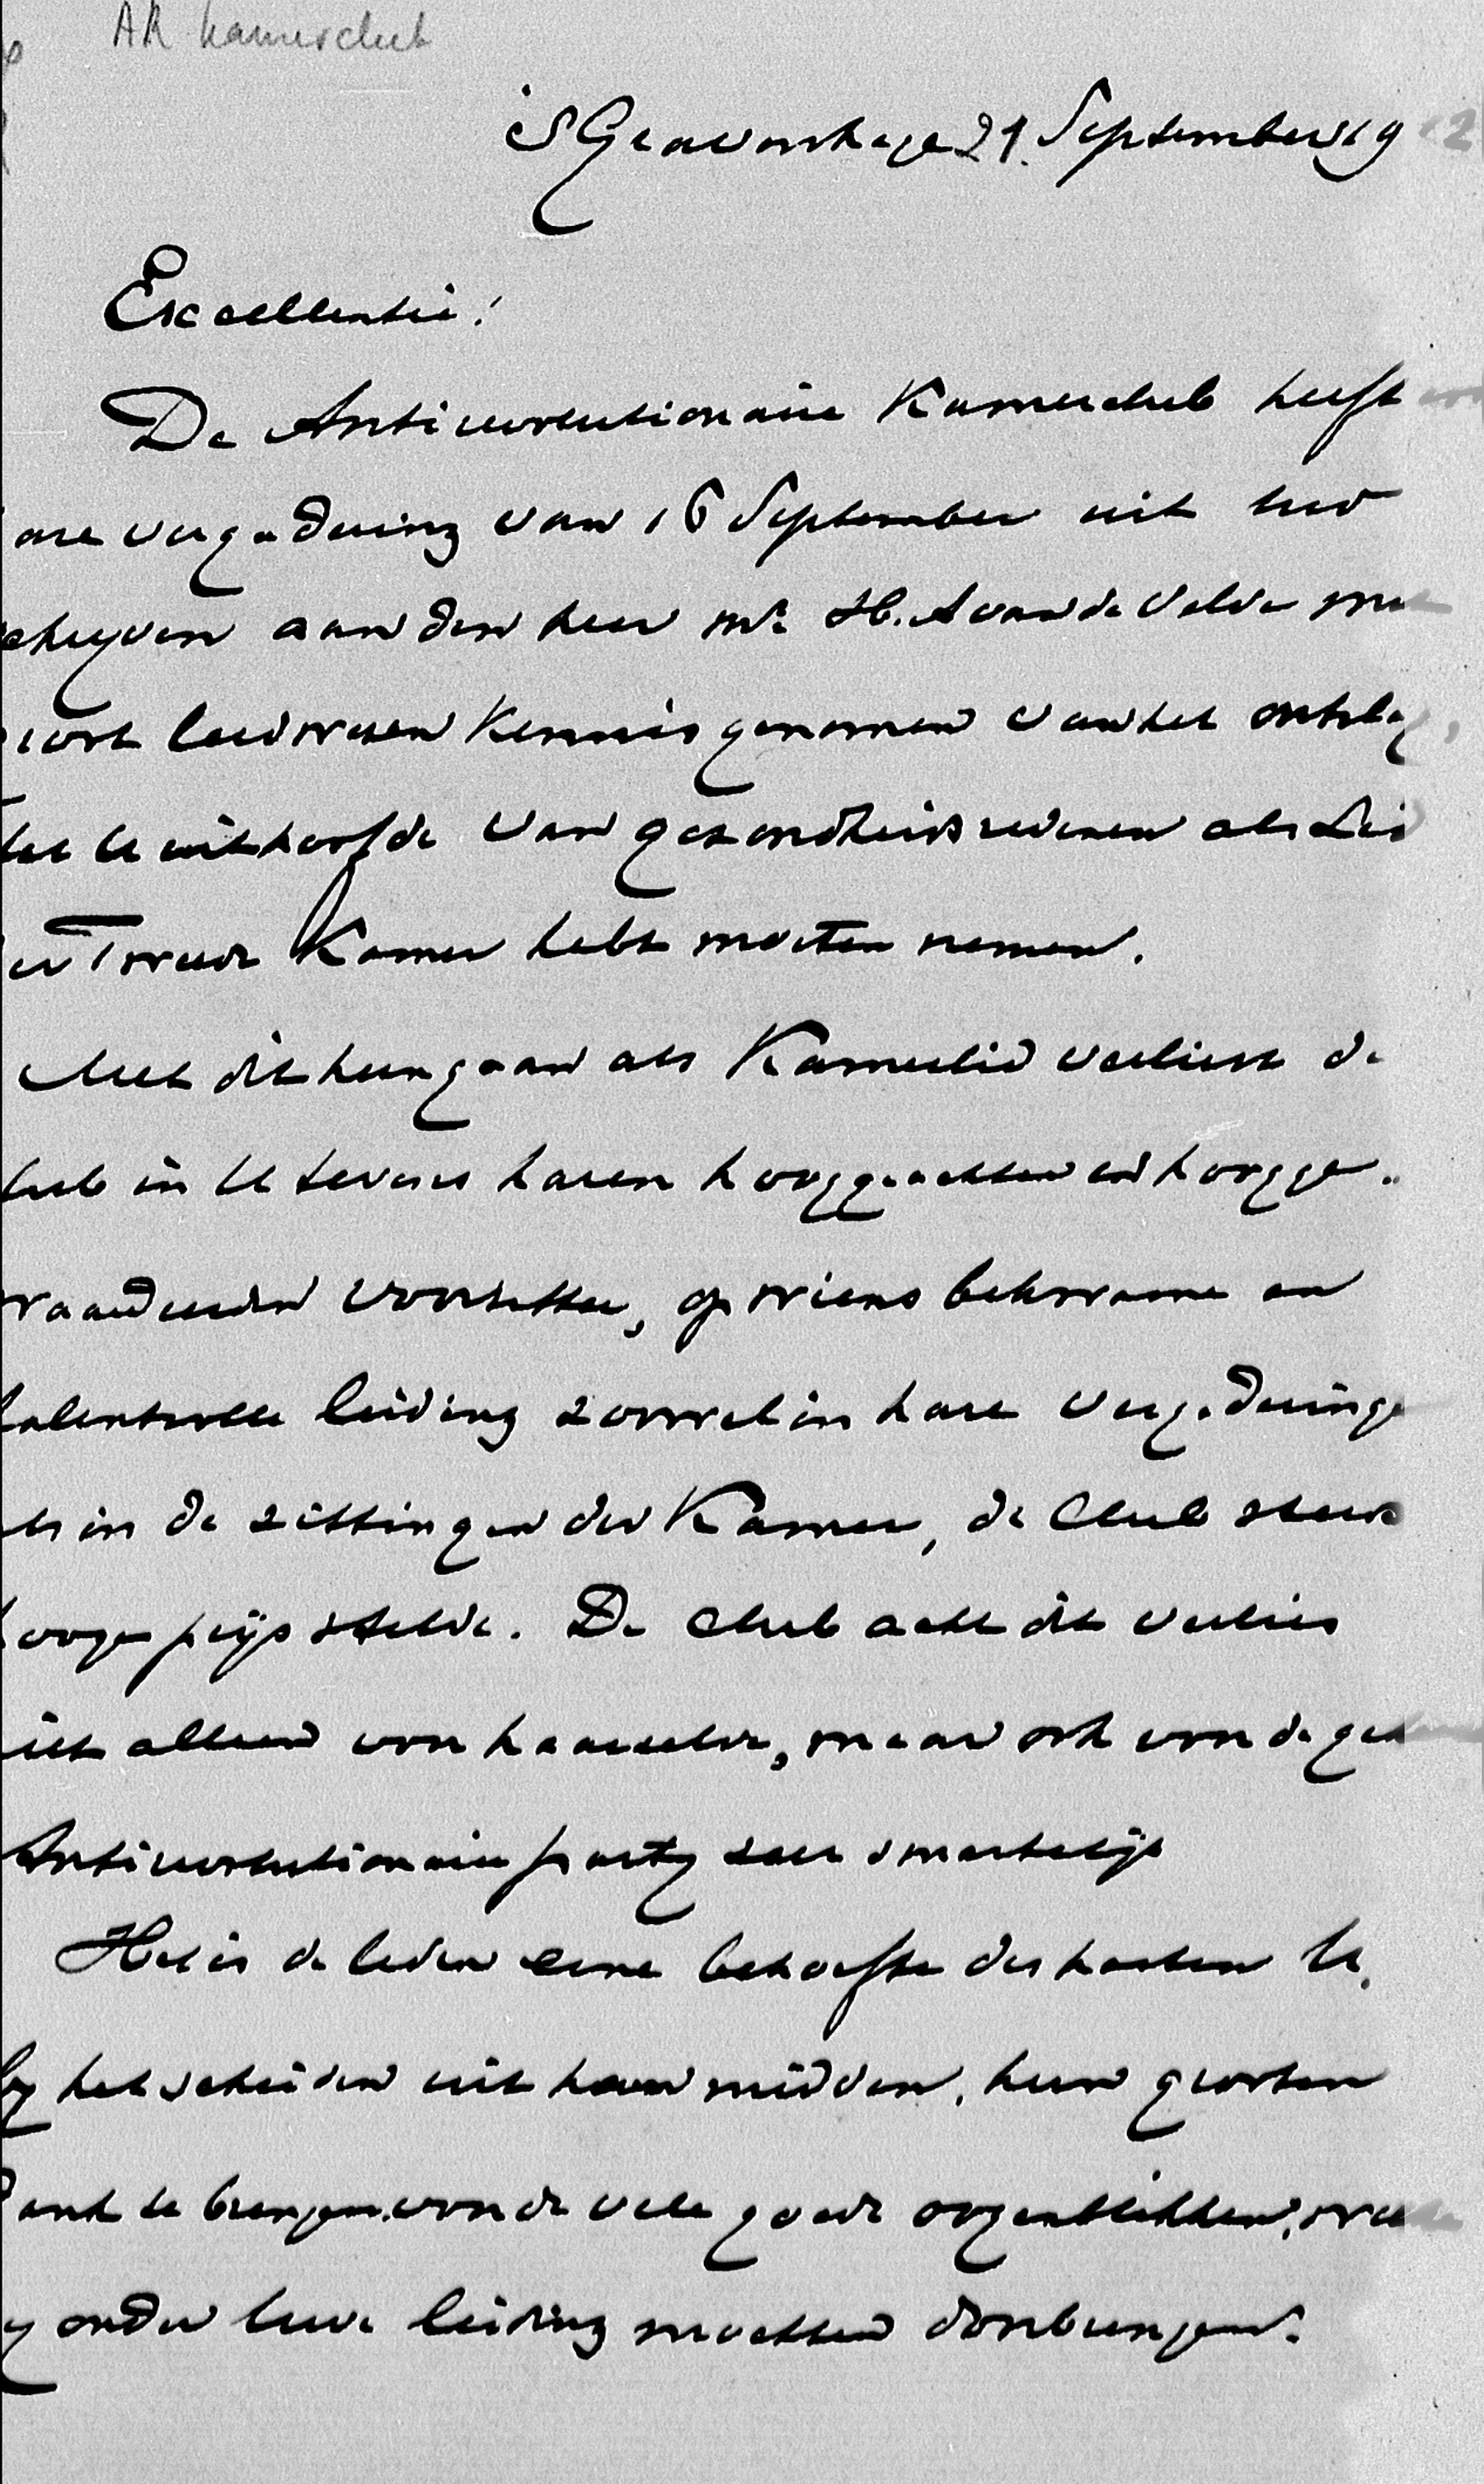 AR Kamerclub
'sGravenhage 21 September 19 2
Excellentie!
De Antirevolutionaire Kamerclub heeft
are vergadering van 16 September uit uw
chryven aan den heer mr H. A van de Velde me
root leedwezen kennis genomen van het ontslag,
dat U uit hoofde van gezondheidsredenen als Lid
er Tweede Kamer hebt moeten nemen.
Met dit heengaan als Kamerlid verliest de
lub in U tevens haren hooggeachten en hoogge-
waardeerden voorzitter, op wiens bekwame en
talentvolle leiding zoowel in hare vergaderinge
ls in de zittingen der Kamer, de Club steeds
hoogen prijs stelde. De Club acht dit verlies
iet alleen voor haarzelve, maar ook voor de ge
Antirevolutionaire party zeer smartelijk
Het is de leden eene behoefte des harten U.
by het scheiden uit haar midden, hun grooten
Dank te brengen voor de vele goede oogenblikken, we
y onder Uwe leiding mochten doorbrengen.